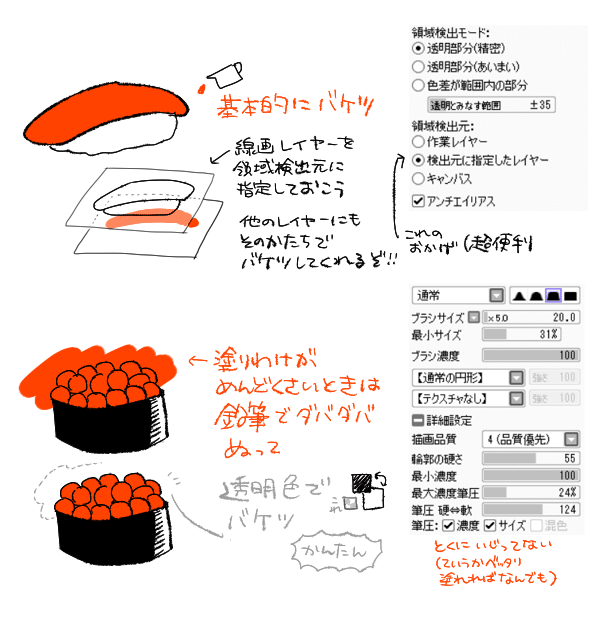 基本的にバケツ
線画レイヤーを
領域検出元に
指定しておこう
他のレイヤーにも
そのかたちで
バケツしてくれるぞ!!
領域検出モード:
透明部分(精密)
透明部分(あいまい)
色差が範囲内の部分
透明とみなす範囲 ±35
領域検出元:
作業レイヤー
検出元に指定したレイヤー
キャンバス
アンチエイリアス
これの
おかげ(超便利
塗りわけが
めんどくさいときは
鉛筆でダバダバ
ぬって
透明色で
バケツ
これ
かんたん
通常
ブラシサイズ ×5.0 20.0
最小サイズ 31%
ブラシ濃度 100
【通常の円形】 強さ 100
【テクスチャなし】 強さ 100
詳細設定
描画品質 4 (品質優先)
輪郭の硬さ 55
最小濃度 100
最大濃度筆圧 24%
筆圧 硬⇔軟 124
筆圧: 濃度 サイズ 混色
とくにいじってない
(ていうかベッタリ
塗れればなんでも)